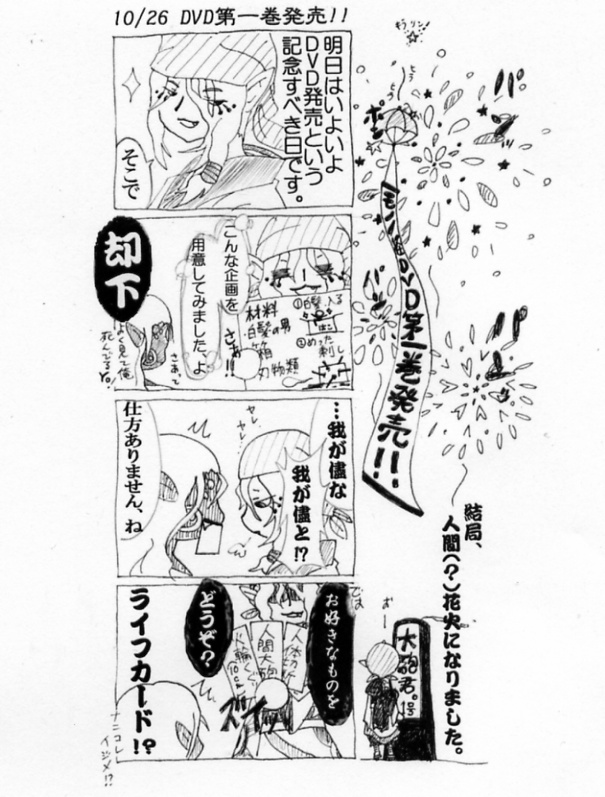 10/26 DVD第一巻発売!!
明日はいよいよ
DVD発売という
記念すべき日です。
そこで
こんな企画を
用意してみました、よ
さぁ!!
材料
白髪の男
箱
刃物類
①白髪入る
はこ
刺し
却下
よく見て俺
死んでるYo!
さあて
…我が儘な
我が儘と!?
ヤレ
ヤレ
仕方ありません、ね
では
お好きなものを
どうぞ?
人間大砲
ズイッ
ライフカード!?
ナニコレ
イジメ!?
キラリン!
ポン
パーン
DVD第一巻発売!!
結局、
人間(?)花火になりました。
おー
大砲君。1号